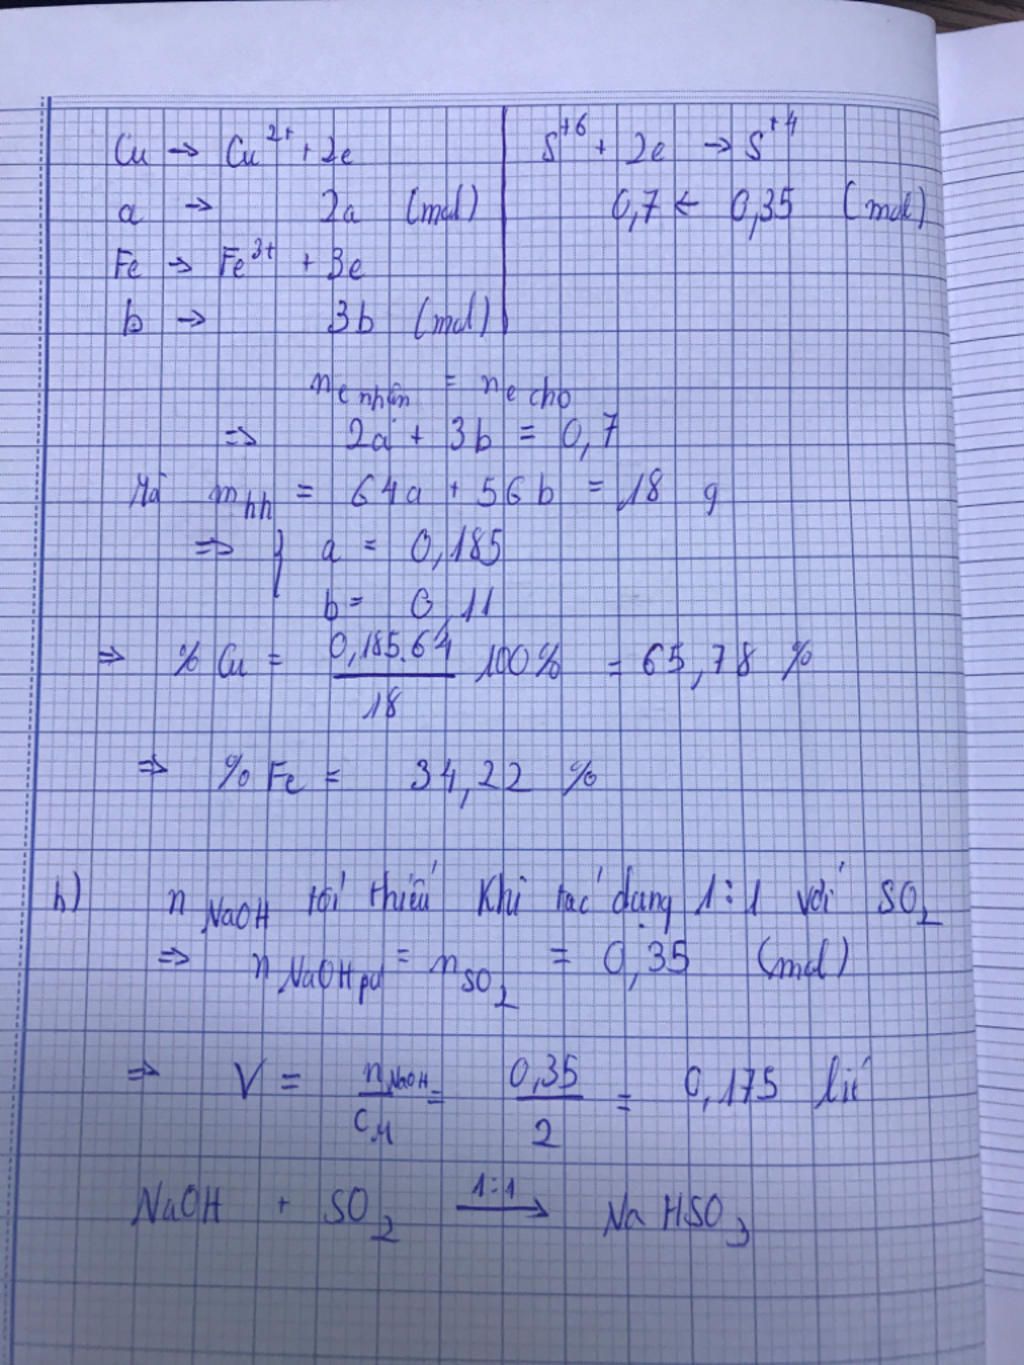 Cu → Cu²⁺ + 2e
a → 2a (mol)
Fe → Fe³⁺ + 3e
b → 3b (mol)
S⁺⁶ + 2e → S⁺⁴
0,7 ← 0,35 (mol)
n e nhận = n e cho
⇒ 2a + 3b = 0,7
Mà m hh = 64a + 56b = 18 g
⇒ { a = 0,185
b = 0,11
⇒ % Cu = 0,185.64/18 100% = 65,78 %
⇒ % Fe = 34,22 %
b) n NaOH tối thiểu khi tác dụng 1:1 với SO₂
⇒ n NaOH pư = n SO₂ = 0,35 (mol)
⇒ V = n NaOH/C M = 0,35/2 = 0,175 lít
NaOH + SO₂ 1:1 → NaHSO₃